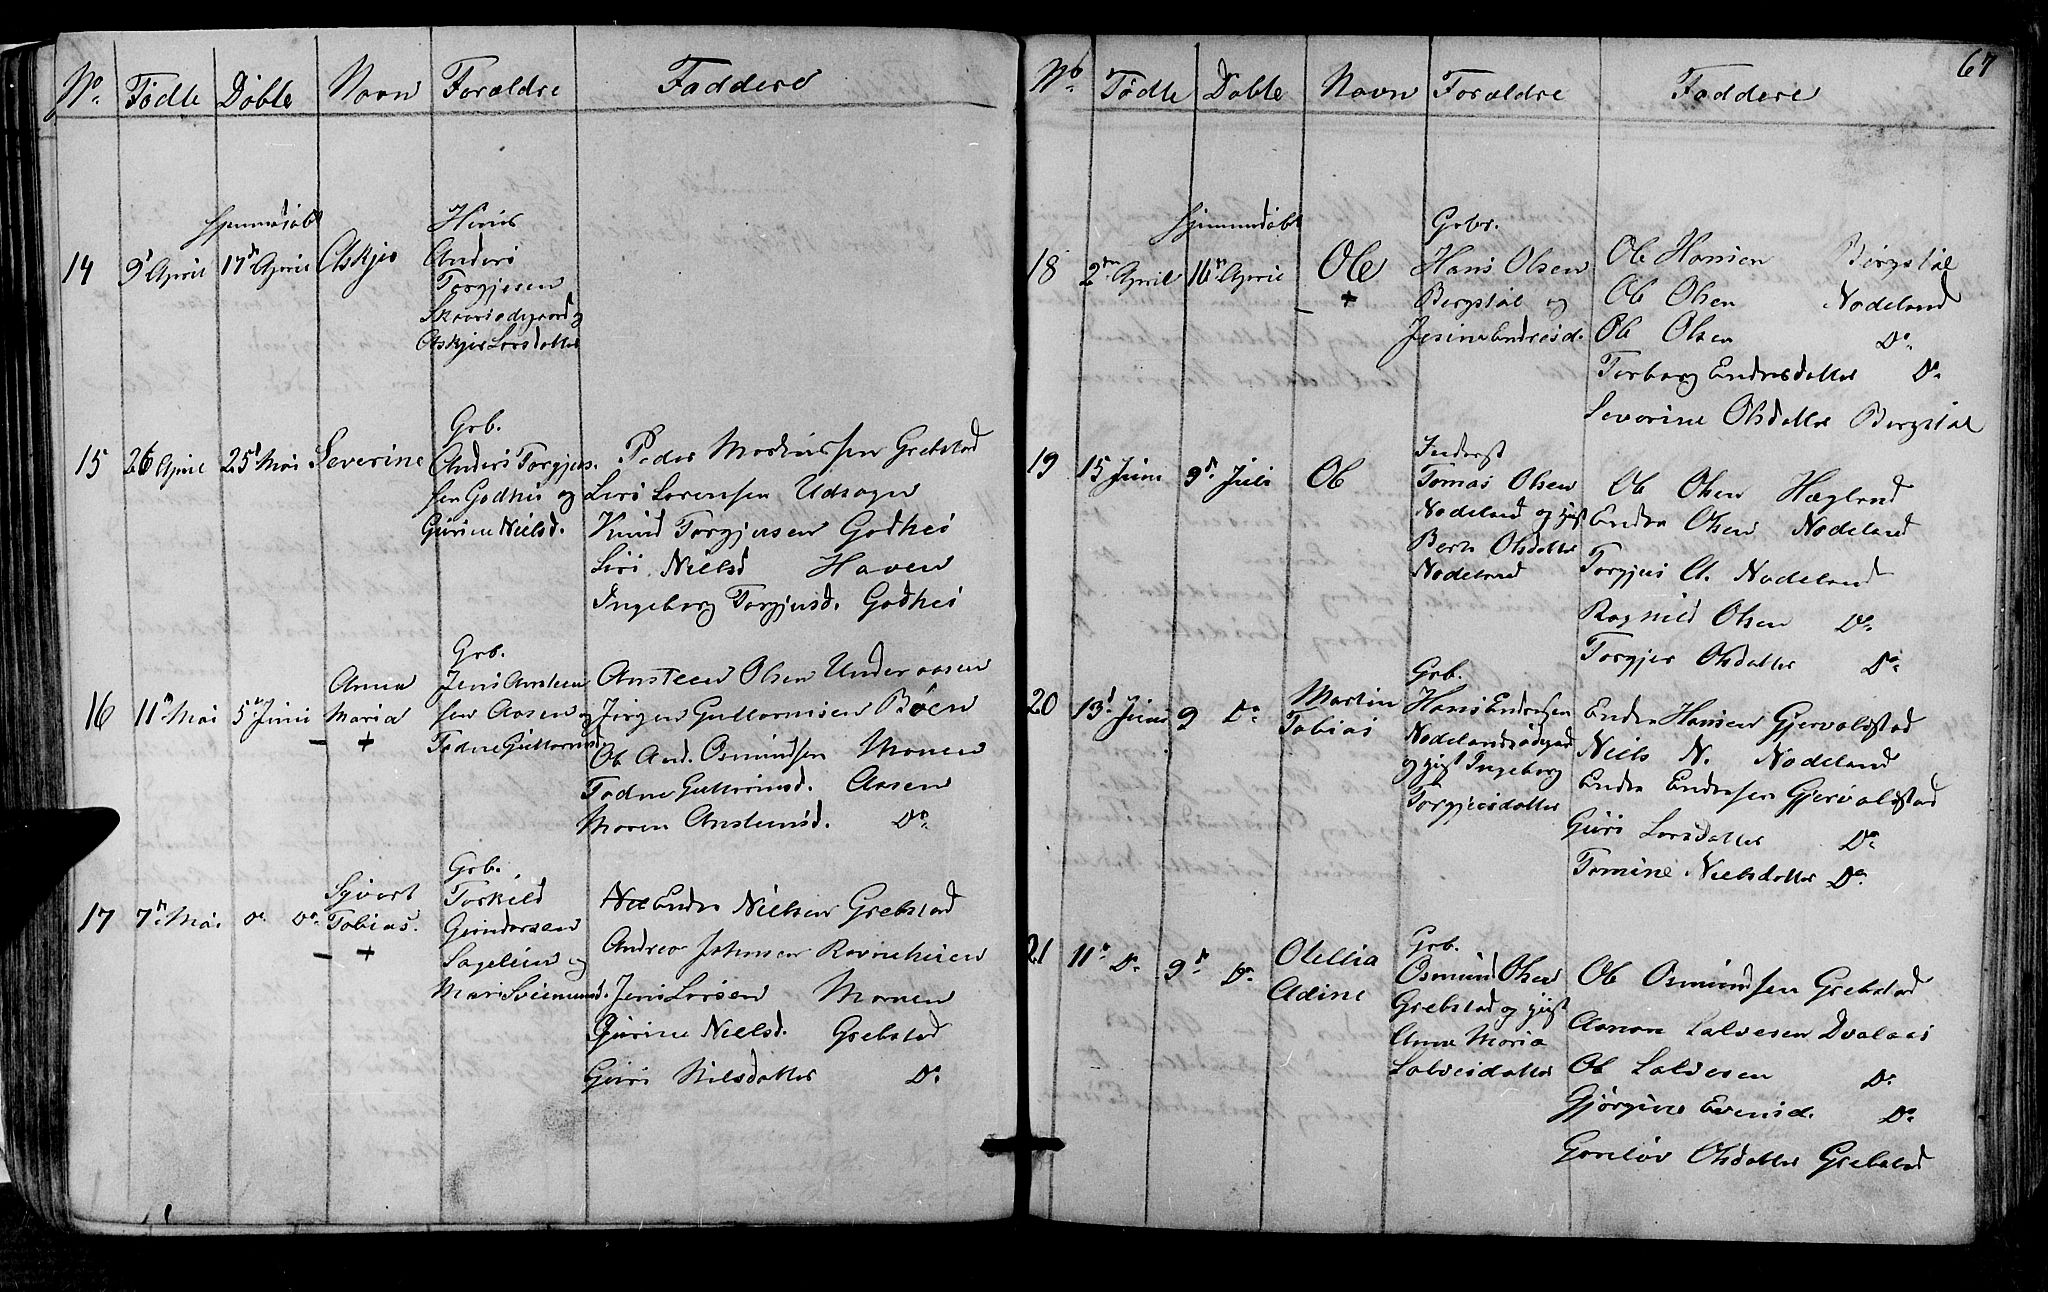 No. Födte Döbte Navn Forældre Faddere
Hjemmedöbt
14 9d April 17d April Askjer
Anders
Torgjesen
og
Askjer Larsdatter
15 26 April 25d Mai Severine
Grb.
Anders Torgjus-
sen Godhei og
Gurine Nielsd.
Peder Grebstad
Siri Sorensen Udhagen
Knud Torgjusen Godhei
Siri Nielsd Haven
Ingeborg Torgjusd. Godhei
16 11te Mai 5te Juni
Anna
Maria
- +
Grb.
Jens Ansteen
sen Aasen og
Todne Guttormsd
Ansteen Olsen Underaasen
Jörgen Guttormsen Böen
Ole And. Osmundsen Monen
Todne Guttormsd. Aasen
Maren Anstensd. Do
17 7de Mai do do
Sÿvert
Tobias.
- +
Grb.
Torkild
Gundersen
Sageleien og
Mari Sveinund.
Endre Nielsen Grebstad
Andrea Johnsen Ravneheien
Jens Larsen Monen
Gurine Nielsd. Grebstad
Guri Nilsdatter Do
67
No. Födte Döbte Navn Forældre Faddere
Hjemmedöbt
18 2den April 16de April Ole
- +
Grbr.
Hans Olsen
Bergstøl og
Jesine Endresd.
Ole Hansen Bergstøl
Ole Olsen Nodeland
Ole Olsen Do
Torborg Endresdatter Do
Severine Olsdatter Bergstøl
19 15 Juni 9de Juli Ole
Inderst
Tomas Olsen
Nodeland og gift
Berte Olsdatter
Nodeland
Ole Olsen Hægland
Endre Olsen Nodeland
Torgjus A. Nodeland
Ragnild Olsen Do
Torgjer Olsdatter Do
20 13d Juni 9 Do
Martin
Tobias
Grb.
Hans Endresen
Nodelandsödegard
og gift Ingeborg
Torgjusdatter
Endre Hansen Gjervoldstad
Niels N. Nodeland
Endre Endresen Gjervoldstad
Guri Larsdatter Do
Tomine Nielsdatter Do
21 11te Do 9de Do
Otellia
Adine
Grb.
Osmund Olsen
Grebstad og gift
Anna Maria
Salvesdatter
Ole Osmundsen Grebstad
Aanon Salvesen Dvalaas
Ole Salvesen Do
Gjörgine Evensd. Do
Gunelöv Olsdatter Grebstad